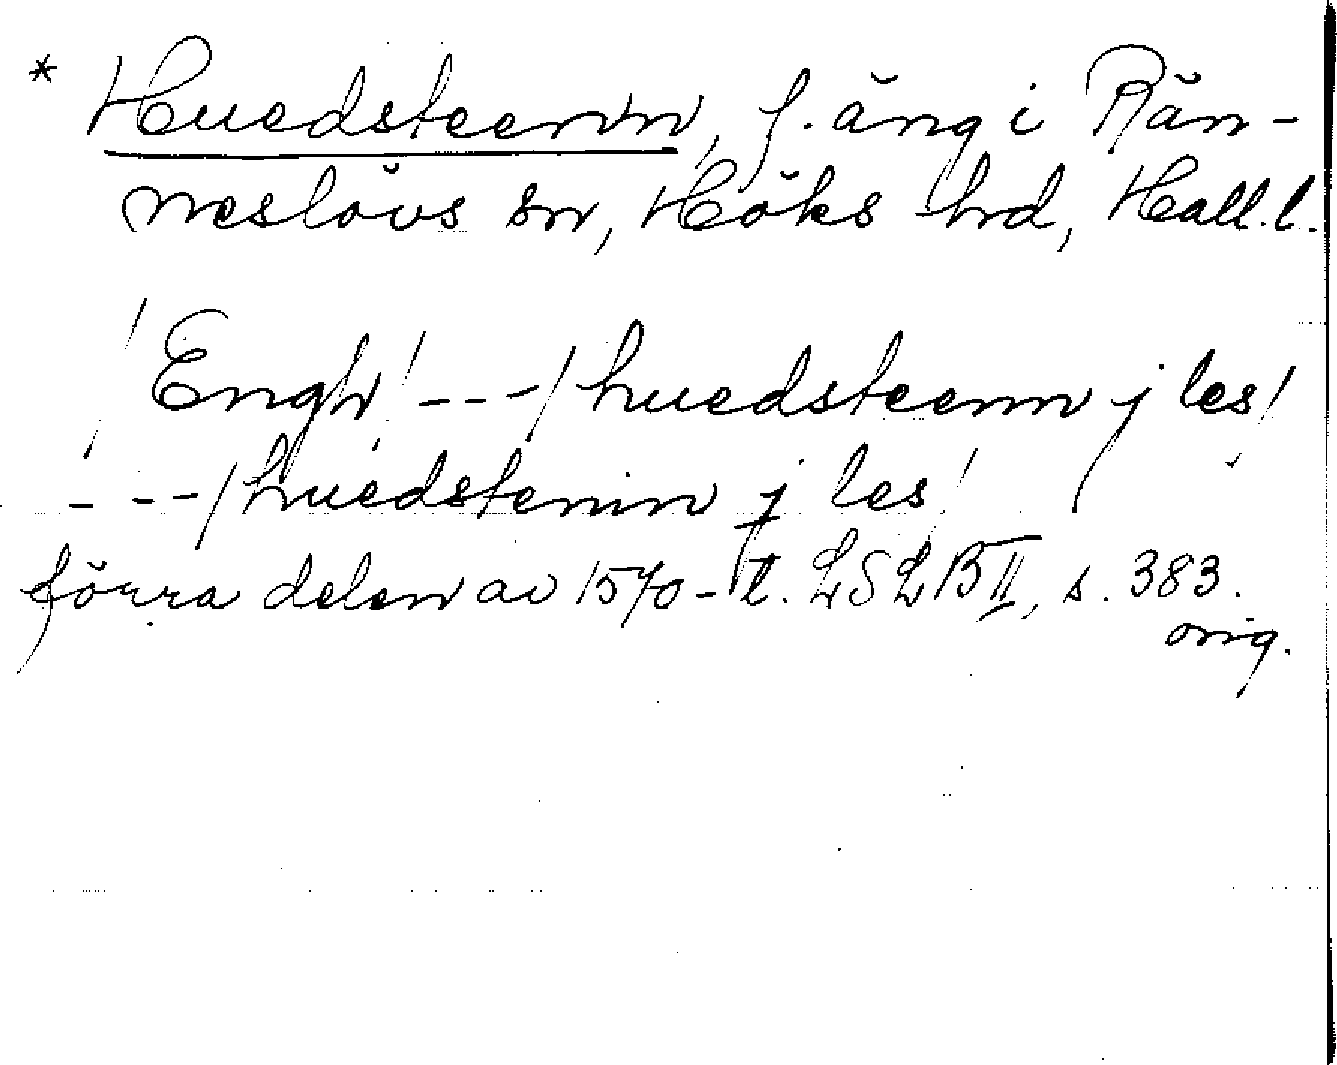 * Huedsteenn, f. äng i Rän-
neslövs sn, Höks hrd, Hall. l.
/ Engh / --- / huedsteenn j les /
/ --- / huedstenin j les /
förra delen av 1570-t. LSLB II, s. 383.
orig.